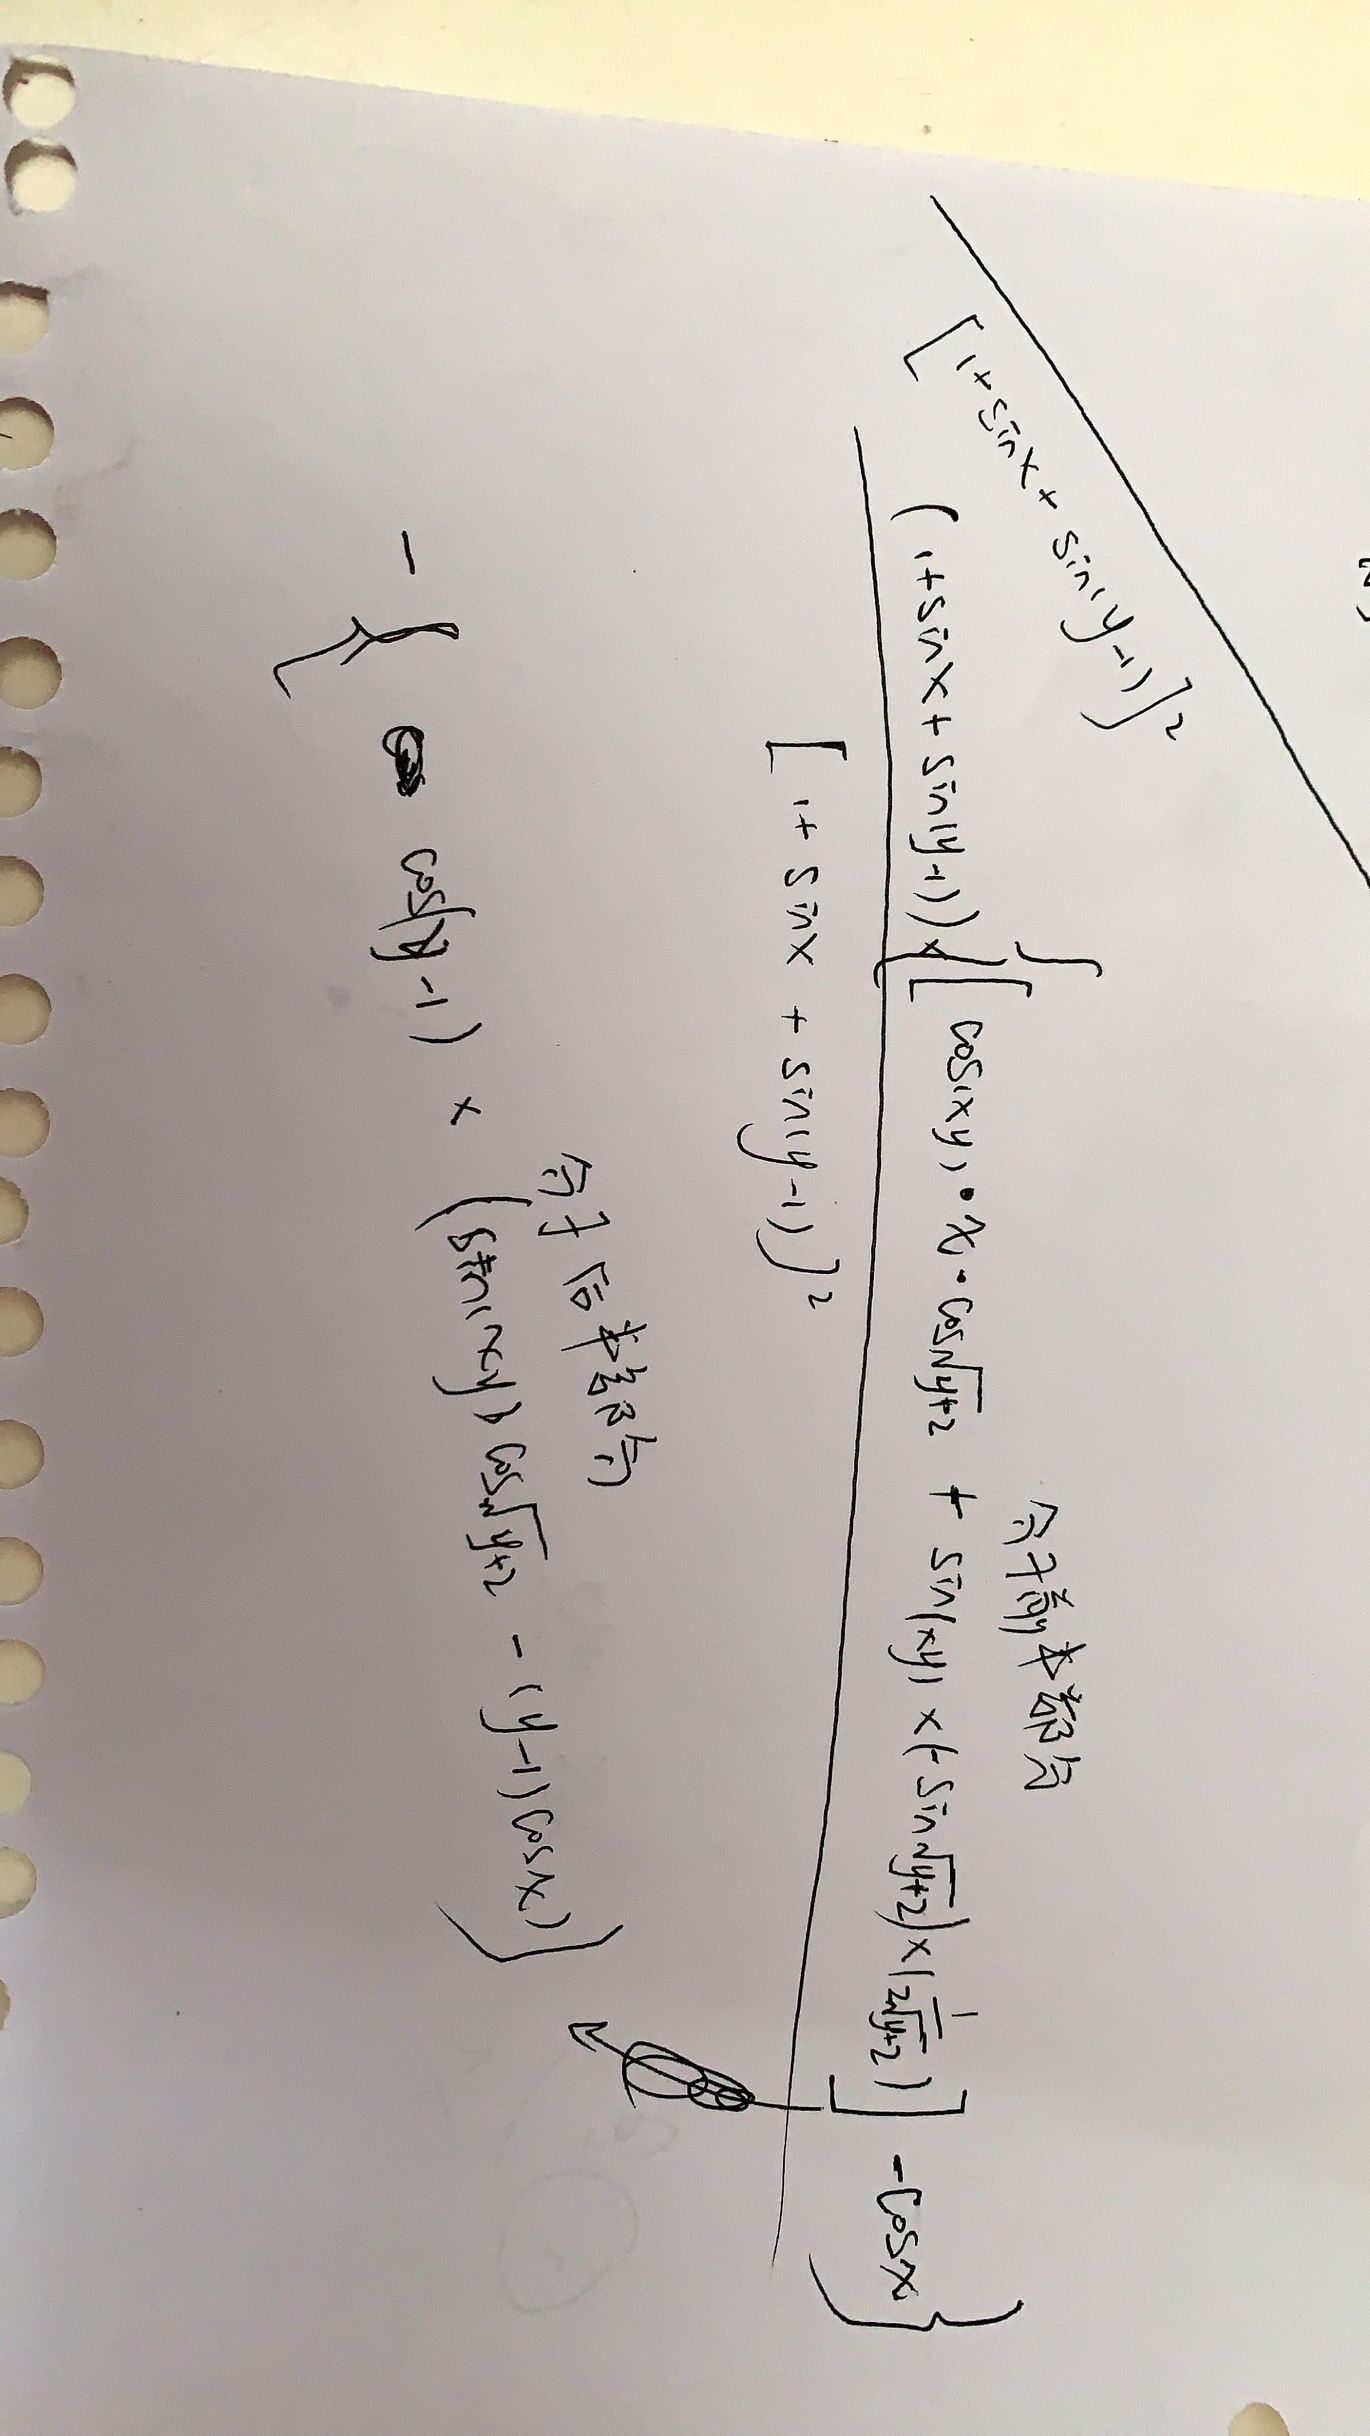 [1+sinx+ sin(y-1)]²
分子前半部分
(1+sinx+ sin(y-1))×{[cos(xy)·x·cos√(y+2) + sin(xy)×(-sin√(y+2))×(1/(2√(y+2)))] -cosx}
[1+ sinx + sin(y-1)]²
分子后半部分
-{cos(y-1) × (sin(xy)cos√(y+2) -(y-1)cosx)}